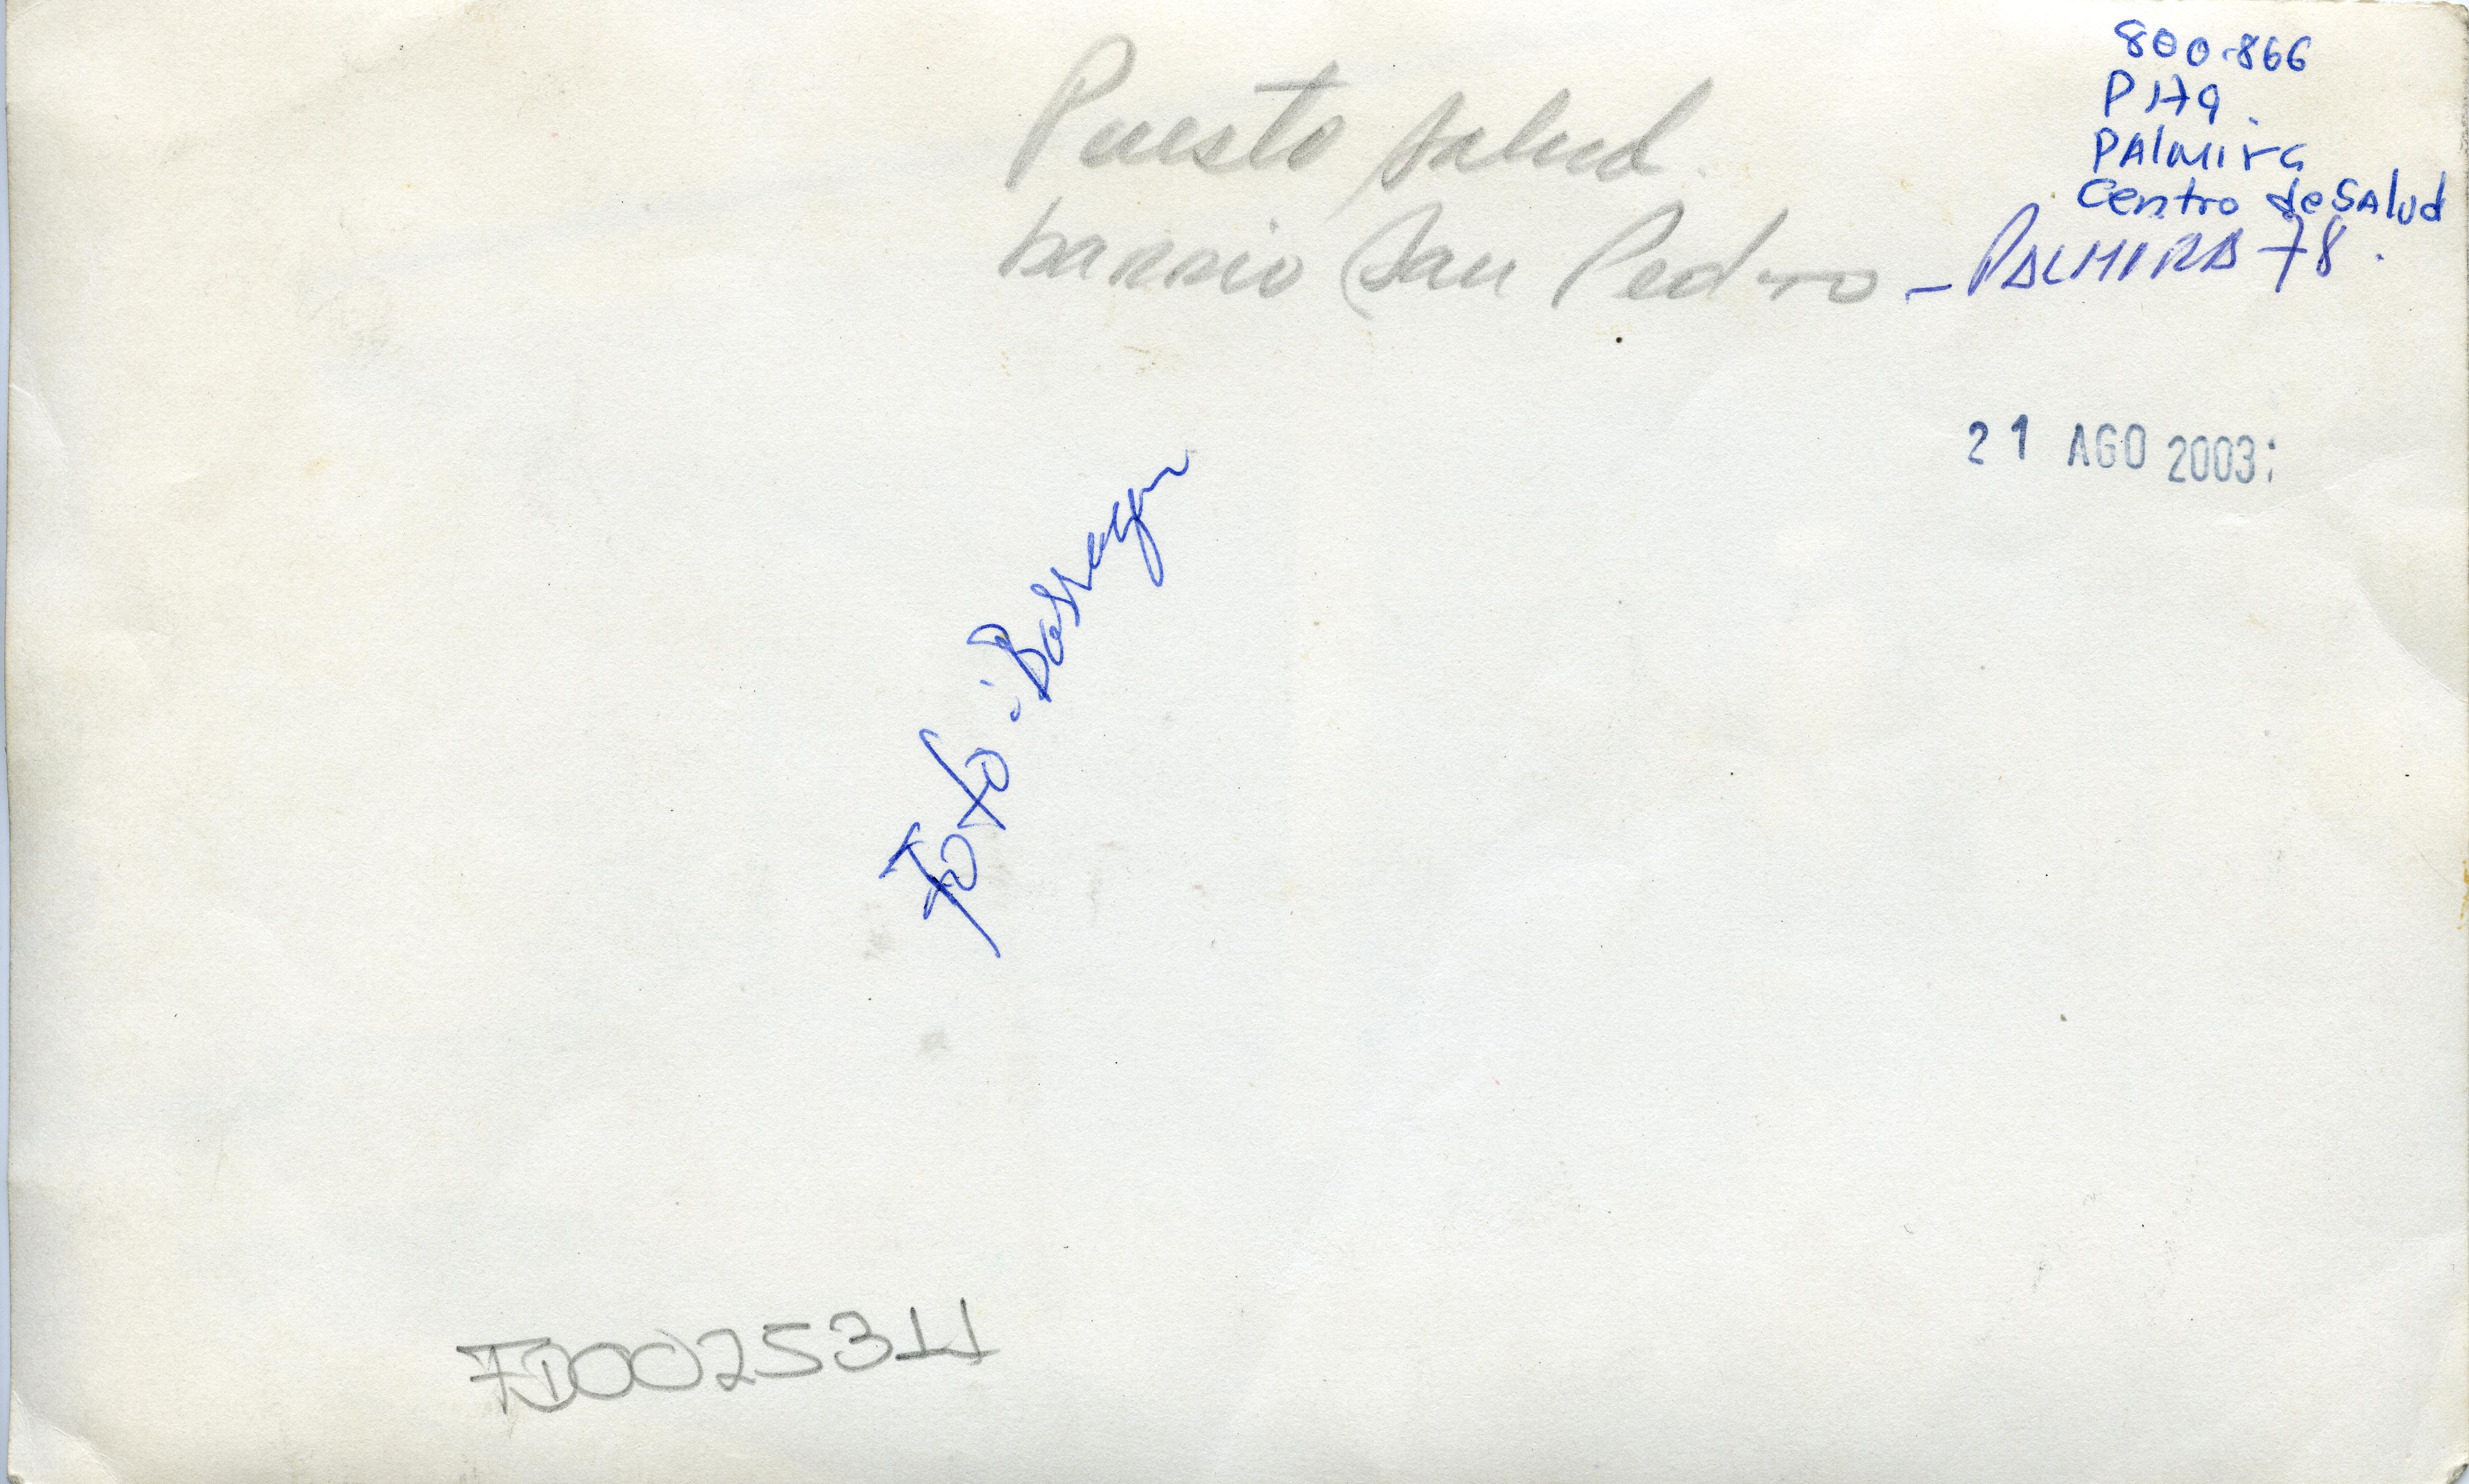 800-866
P179
PAlmira
Centro de SAlud
Puesto salud
barrio San Pedro - PALMIRA 78.
21 AGO 2003
Foto: